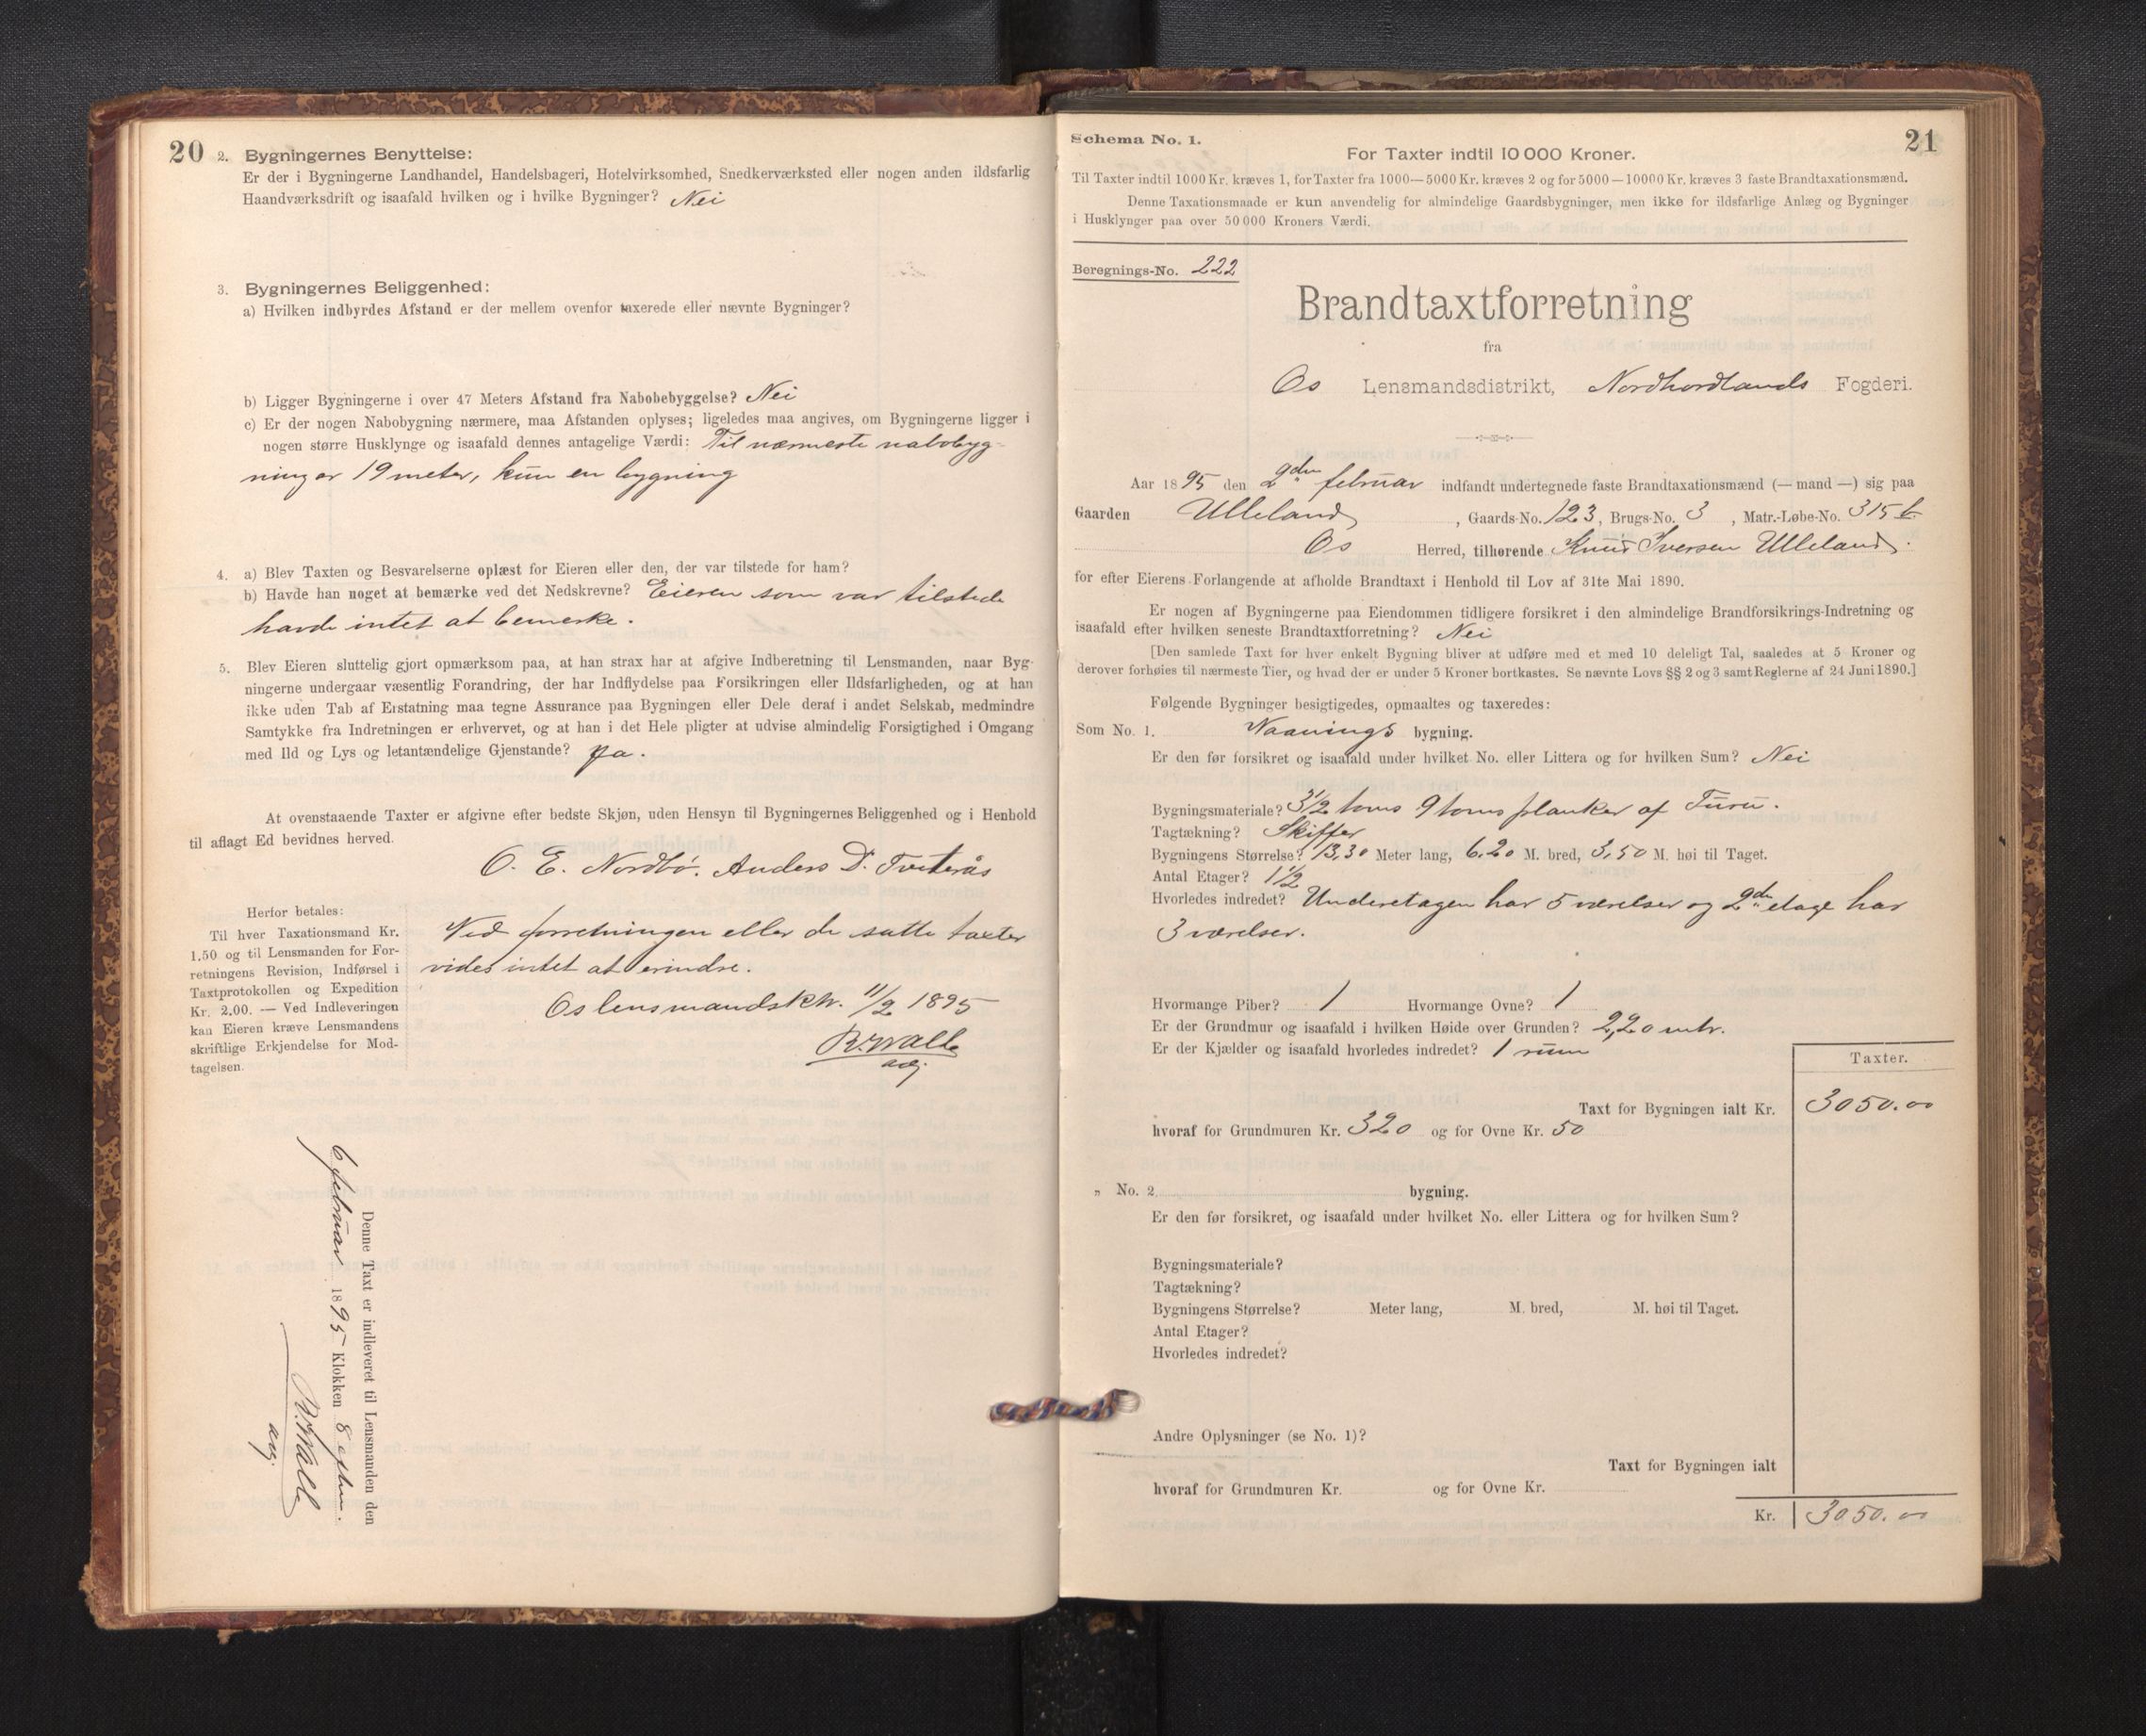 20
2. Bygningernes Benyttelse:
Er der i Bygningerne Landhandel, Handelsbageri, Hotelvirksomhed, Snedkerværksted eller nogen anden ildsfarlig
Haandværksdrift og isaafald hvilken og i hvilke Bygninger? Nei
3. Bygningernes Beliggenhed:
a) Hvilken indbyrdes Afstand er der mellem ovenfor taxerede eller nævnte Bygninger?
b) Ligger Bygningerne i over 47 Meters Afstand fra Nabobebyggelse? Nei
c) Er der nogen Nabobygning nærmere, maa Afstanden oplyses; ligeledes maa angives, om Bygningerne ligger i
nogen større Husklynge og isaafald dennes antagelige Værdi: Til nærmeste nabobyg-
ning er 19 meter, kun en bygning
4. a) Blev Taxten og Besvarelserne oplæst for Eieren eller den, der var tilstede for ham?
b) Havde han noget at bemærke ved det Nedskrevne? Eieren som var tilstede
havde intet at bemerke.
5. Blev Eieren sluttelig gjort opmærksom paa, at han strax har at afgive Indberetning til Lensmanden, naar Byg-
ningerne undergaar væsentlig Forandring, der har Indflydelse paa Forsikringen eller Ildsfarligheden, og at han
ikke uden Tab af Erstatning maa tegne Assurance paa Bygningen eller Dele deraf i andet Selskab, medmindre
Samtykke fra Indretningen er erhvervet, og at han i det Hele pligter at udvise almindelig Forsigtighed i Omgang
med Ild og Lys og letantændelige Gjenstande? Ja.
At ovenstaaende Taxter er afgivne efter bedste Skjøn, uden Hensyn til Bygningernes Beliggenhed og i Henhold
til aflagt Ed bevidnes herved.
O. E. Nordbø. Anders D. Tveterås
Herfor betales:
Til hver Taxationsmand Kr.
1.50 og til Lensmanden for For-
retningens Revision, Indførsel i
Taxtprotokollen og Expedition
Kr. 2.00. — Ved Indleveringen
kan Eieren kræve Lensmandens
skriftlige Erkjendelse for Mod-
tagelsen.
Ved forretningen eller de satte taxter
vides intet at erindre.
Os lensmandsktr. 11/2 1895
R. Walle
Denne Taxt er indleveret til Lensmanden den
6 februar 1895 Klokken 8 efterm.
R. Walle
21
Schema No. 1.
For Taxter indtil 10 000 Kroner.
Til Taxter indtil 1000 Kr. kræves 1, for Taxter fra 1000—5000 Kr. kræves 2 og for 5000—10000 Kr. kræves 3 faste Brandtaxationsmænd.
Denne Taxationsmaade er kun anvendelig for almindelige Gaardsbygninger, men ikke for ildsfarlige Anlæg og Bygninger
i Husklynger paa over 50 000 Kroners Værdi.
Beregnings-No. 222
Brandtaxtforretning
fra
Os Lensmandsdistrikt, Nordhordlands Fogderi.
Aar 1895 den 2den februar indfandt undertegnede faste Brandtaxationsmænd (— mand —) sig paa
Gaarden Ulleland, Gaards-No. 123, Brugs-No. 3, Matr.-Løbe-No. 315 b.
Os Herred, tilhørende Knud Iversen Ulleland.
for efter Eierens Forlangende at afholde Brandtaxt i Henhold til Lov af 31te Mai 1890.
Er nogen af Bygningerne paa Eiendommen tidligere forsikret i den almindelige Brandforsikrings-Indretning og
isaafald efter hvilken seneste Brandtaxtforretning? Nei
[Den samlede Taxt for hver enkelt Bygning bliver at udføre med et med 10 deleligt Tal, saaledes at 5 Kroner og
derover forhøies til nærmeste Tier, og hvad der er under 5 Kroner bortkastes. Se nævnte Lovs §§ 2 og 3 samt Reglerne af 24 Juni 1890.]
Følgende Bygninger besigtigedes, opmaaltes og taxeredes:
Som No. 1. Vaanings bygning.
Er den før forsikret og isaafald under hvilket No. eller Littera og for hvilken Sum? Nei
Bygningsmateriale? 3 1/2 toms 9 toms planker af Furu.
Tagtækning? Skiffer
Bygningens Størrelse? 13,30 Meter lang, 6,20 M. bred, 3,50 M. høi til Taget.
Antal Etager? 1 1/2
Hvorledes indredet? Underetagen har 5 værelser og 2den etage har
3 værelser.
Hvormange Piber? 1 Hvormange Ovne? 1
Er der Grundmur og isaafald i hvilken Høide over Grunden? 2,20 mtr.
Er der Kjælder og isaafald hvorledes indredet? 1 rum
Taxter.
Taxt for Bygningen ialt Kr. 3050.00
hvoraf for Grundmuren Kr. 320 og for Ovne Kr. 50
„ No. 2 bygning.
Er den før forsikret, og isaafald under hvilket No. eller Littera og for hvilken Sum?
Bygningsmateriale?
Tagtækning?
Bygningens Størrelse? Meter lang, M. bred, M. høi til Taget.
Antal Etager?
Hvorledes indredet?
Andre Oplysninger (se No. 1)?
Taxt for Bygningen ialt
hvoraf for Grundmuren Kr. og for Ovne Kr.
Kr. 3050.00